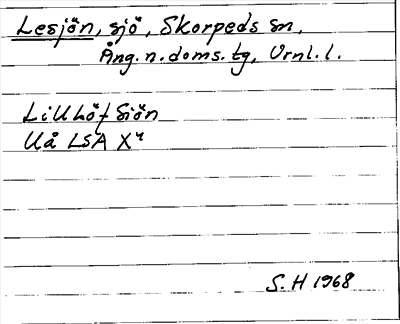 Lesjön, sjö, Skorpeds sn,
Ång. n. doms. tg, Vrnl. l.
Lillhöf Siön
Uå LSA X⁴
S. H 1968